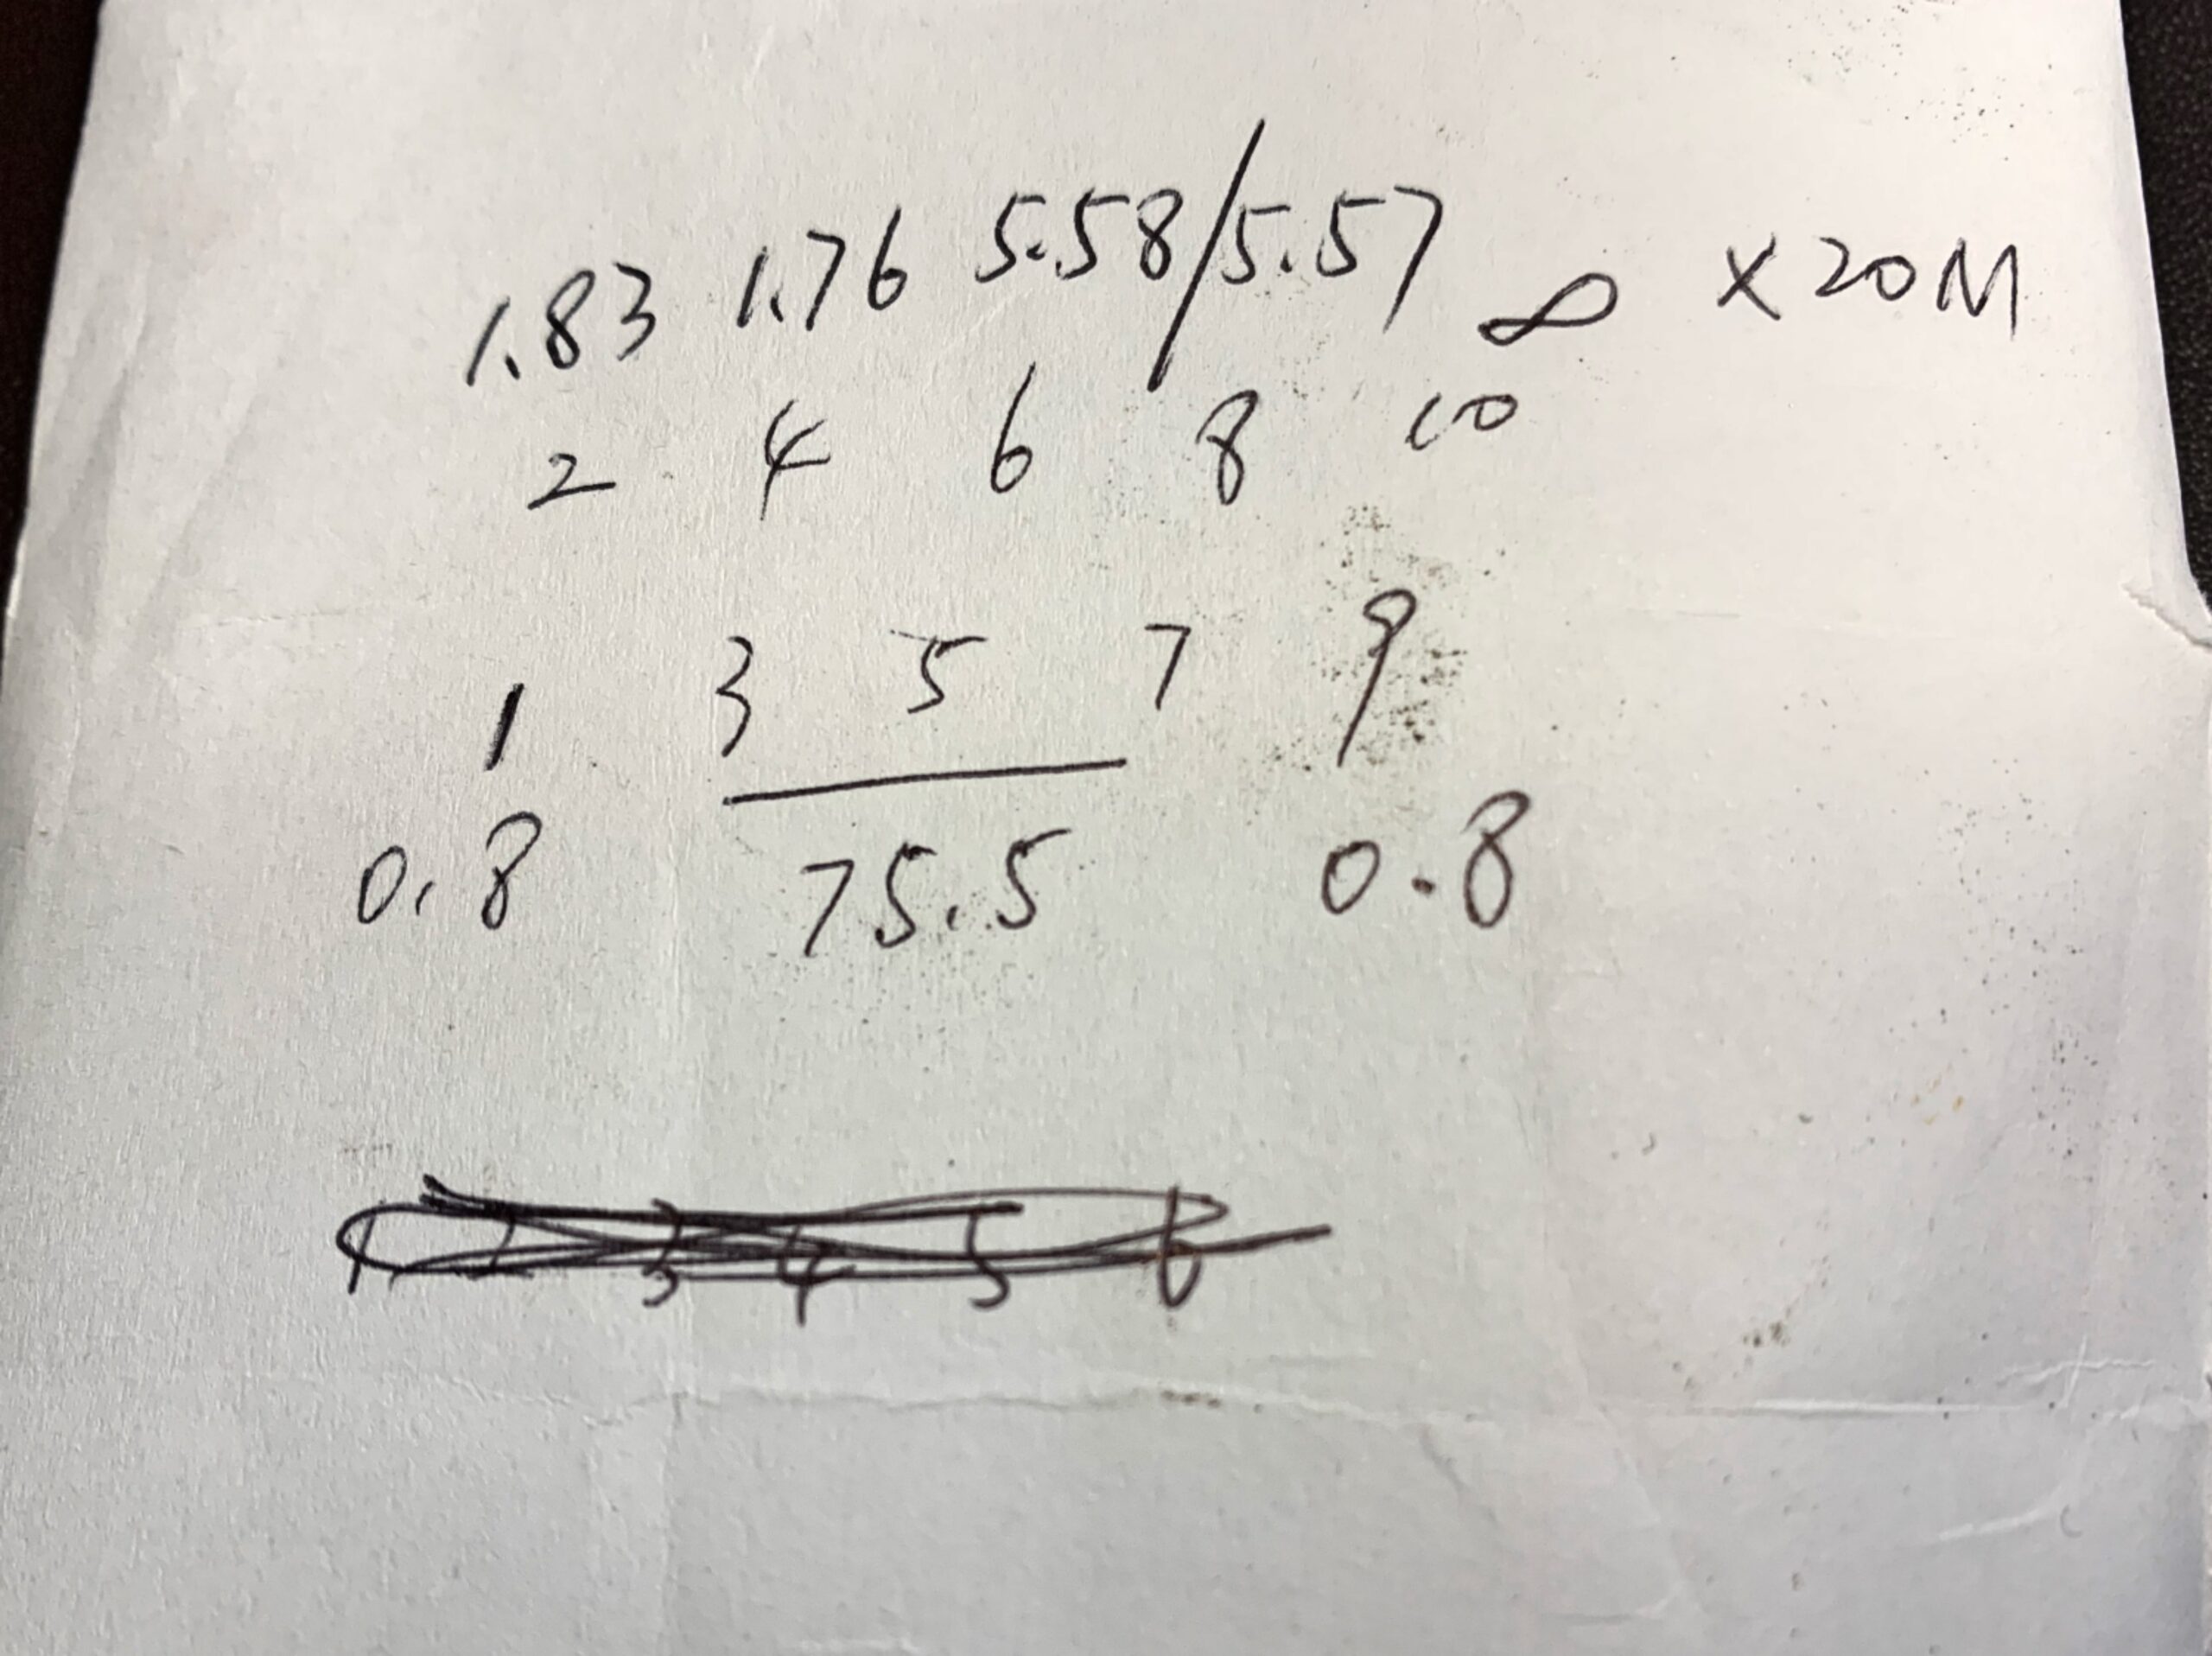 1.83 1.76 5.58/5.57 ∞ ×20M
2 4 6 8 10
1 3 5 7 9
0.8 75.5 0.8
1 2 3 4 5 6